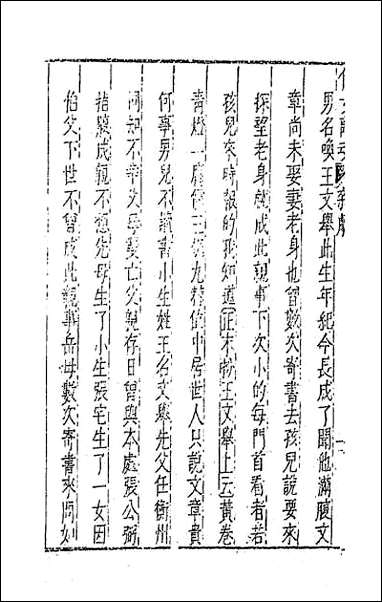 男名喚王文舉此生年紀今長成了聞他滿腹文
章尚未娶妻老身也曾數次寄書去孩兒說要來
探望老身就成此親事下次小的每門首看者若
孩兒來時報的我知道正末扮王文舉上云黃卷
青燈一腐儒三槐九棘位中居世人只說文章貴
何事男兒不讀書小生姓王名文舉先父任衡州
同知不幸父母雙亡父親存日曾與本處張公弼
指腹成親不想先母生了小生張宅生了一女因
伯父下世不曾成此親事岳母數次寄書來問如